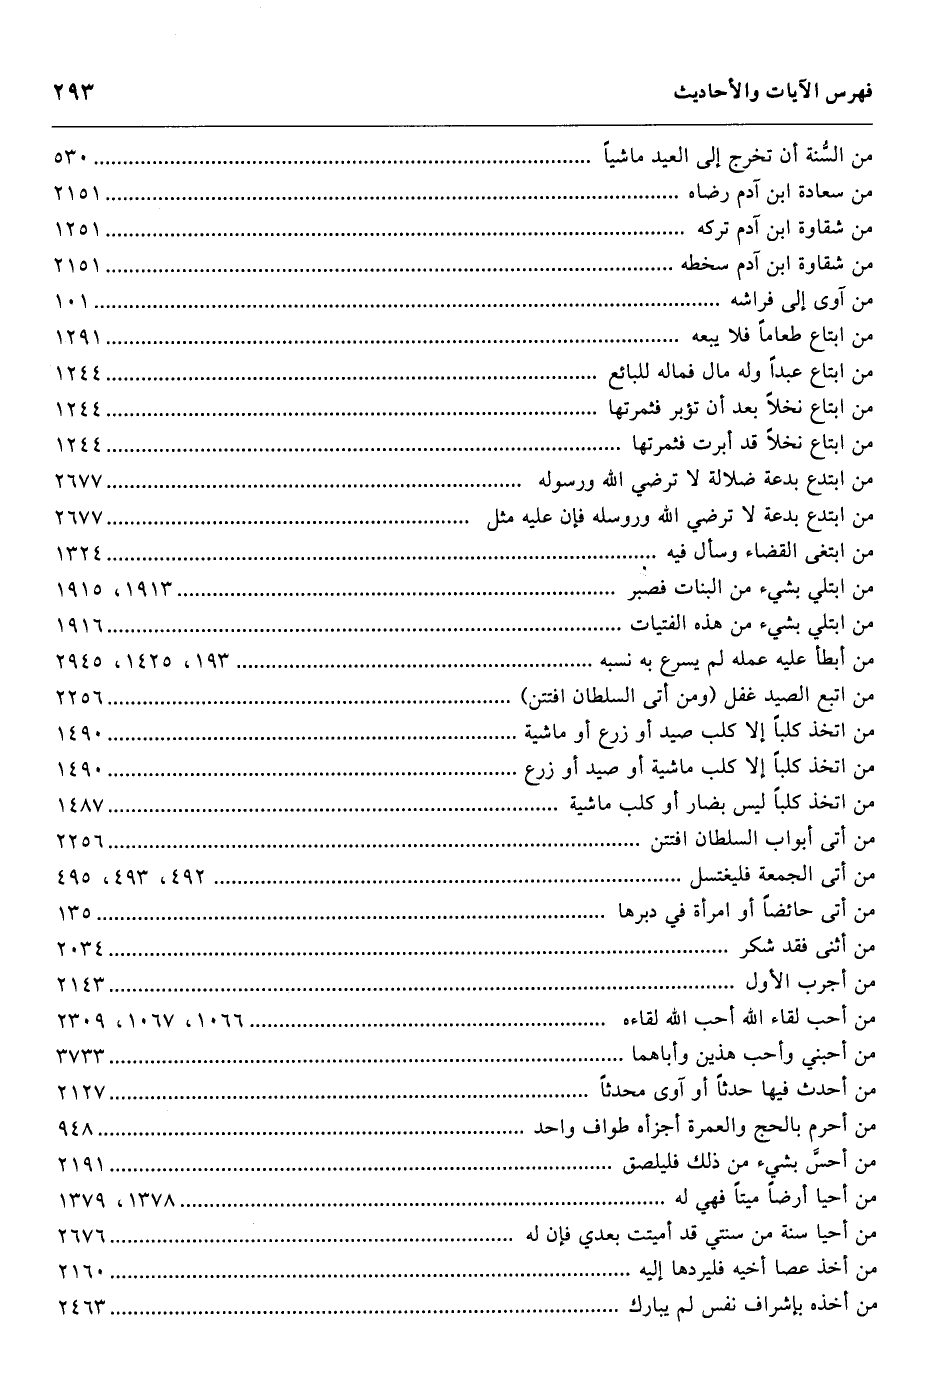 فهرس الآيات والأحاديث ٢٩٣
من السُّنة أن تخرج إلى العيد ماشياً ..... ٥٣٠
من سعادة ابن آدم رضاه ..... ٢١٥١
من شقاوة ابن آدم تركه ..... ١٢٥١
من شقاوة ابن آدم سخطه ..... ٢١٥١
من آوى إلى فراشه ..... ١٠١
من ابتاع طعاماً فلا يبعه ..... ١٢٩١
من ابتاع عبداً وله مال فماله للبائع ..... ١٢٤٤
من ابتاع نخلاً بعد أن تؤبر فثمرتها ..... ١٢٤٤
من ابتاع نخلاً قد أبرت فثمرتها ..... ١٢٤٤
من ابتدع بدعة ضلالة لا ترضي الله ورسوله ..... ٢٦٧٧
من ابتدع بدعة لا ترضي الله وروسله فإن عليه مثل ..... ٢٦٧٧
من ابتغى القضاء وسأل فيه ..... ١٣٢٤
من ابتلي بشيء من البنات فصبر ..... ١٩١٣، ١٩١٥
من ابتلي بشيء من هذه الفتيات ..... ١٩١٦
من أبطأ عليه عمله لم يسرع به نسبه ..... ١٩٣، ١٤٢٥، ٢٩٤٥
من اتبع الصيد غفل (ومن أتى السلطان افتتن) ..... ٢٢٥٦
من اتخذ كلباً إلا كلب صيد أو زرع أو ماشية ..... ١٤٩٠
من اتخذ كلباً إلا كلب ماشية أو صيد أو زرع ..... ١٤٩٠
من اتخذ كلباً ليس بضار أو كلب ماشية ..... ١٤٨٧
من أتى أبواب السلطان افتتن ..... ٢٢٥٦
من أتى الجمعة فليغتسل ..... ٤٩٢، ٤٩٣، ٤٩٥
من أتى حائضاً أو امرأة في دبرها ..... ١٣٥
من أثنى فقد شكر ..... ٢٠٣٤
من أجرب الأول ..... ٢١٤٣
من أحب لقاء الله أحب الله لقاءه ..... ١٠٦٦، ١٠٦٧، ٢٣٠٩
من أحبني وأحب هذين وأباهما ..... ٣٧٣٣
من أحدث فيها حدثاً أو آوى محدثاً ..... ٢١٢٧
من أحرم بالحج والعمرة أجزأه طواف واحد ..... ٩٤٨
من أحسَّ بشيء من ذلك فليلصق ..... ٢١٩١
من أحيا أرضاً ميتاً فهي له ..... ١٣٧٨، ١٣٧٩
من أحيا سنة من سنتي قد أميتت بعدي فإن له ..... ٢٦٧٦
من أخذ عصا أخيه فليردها إليه ..... ٢١٦٠
من أخذه بإشراف نفس لم يبارك ..... ٢٤٦٣